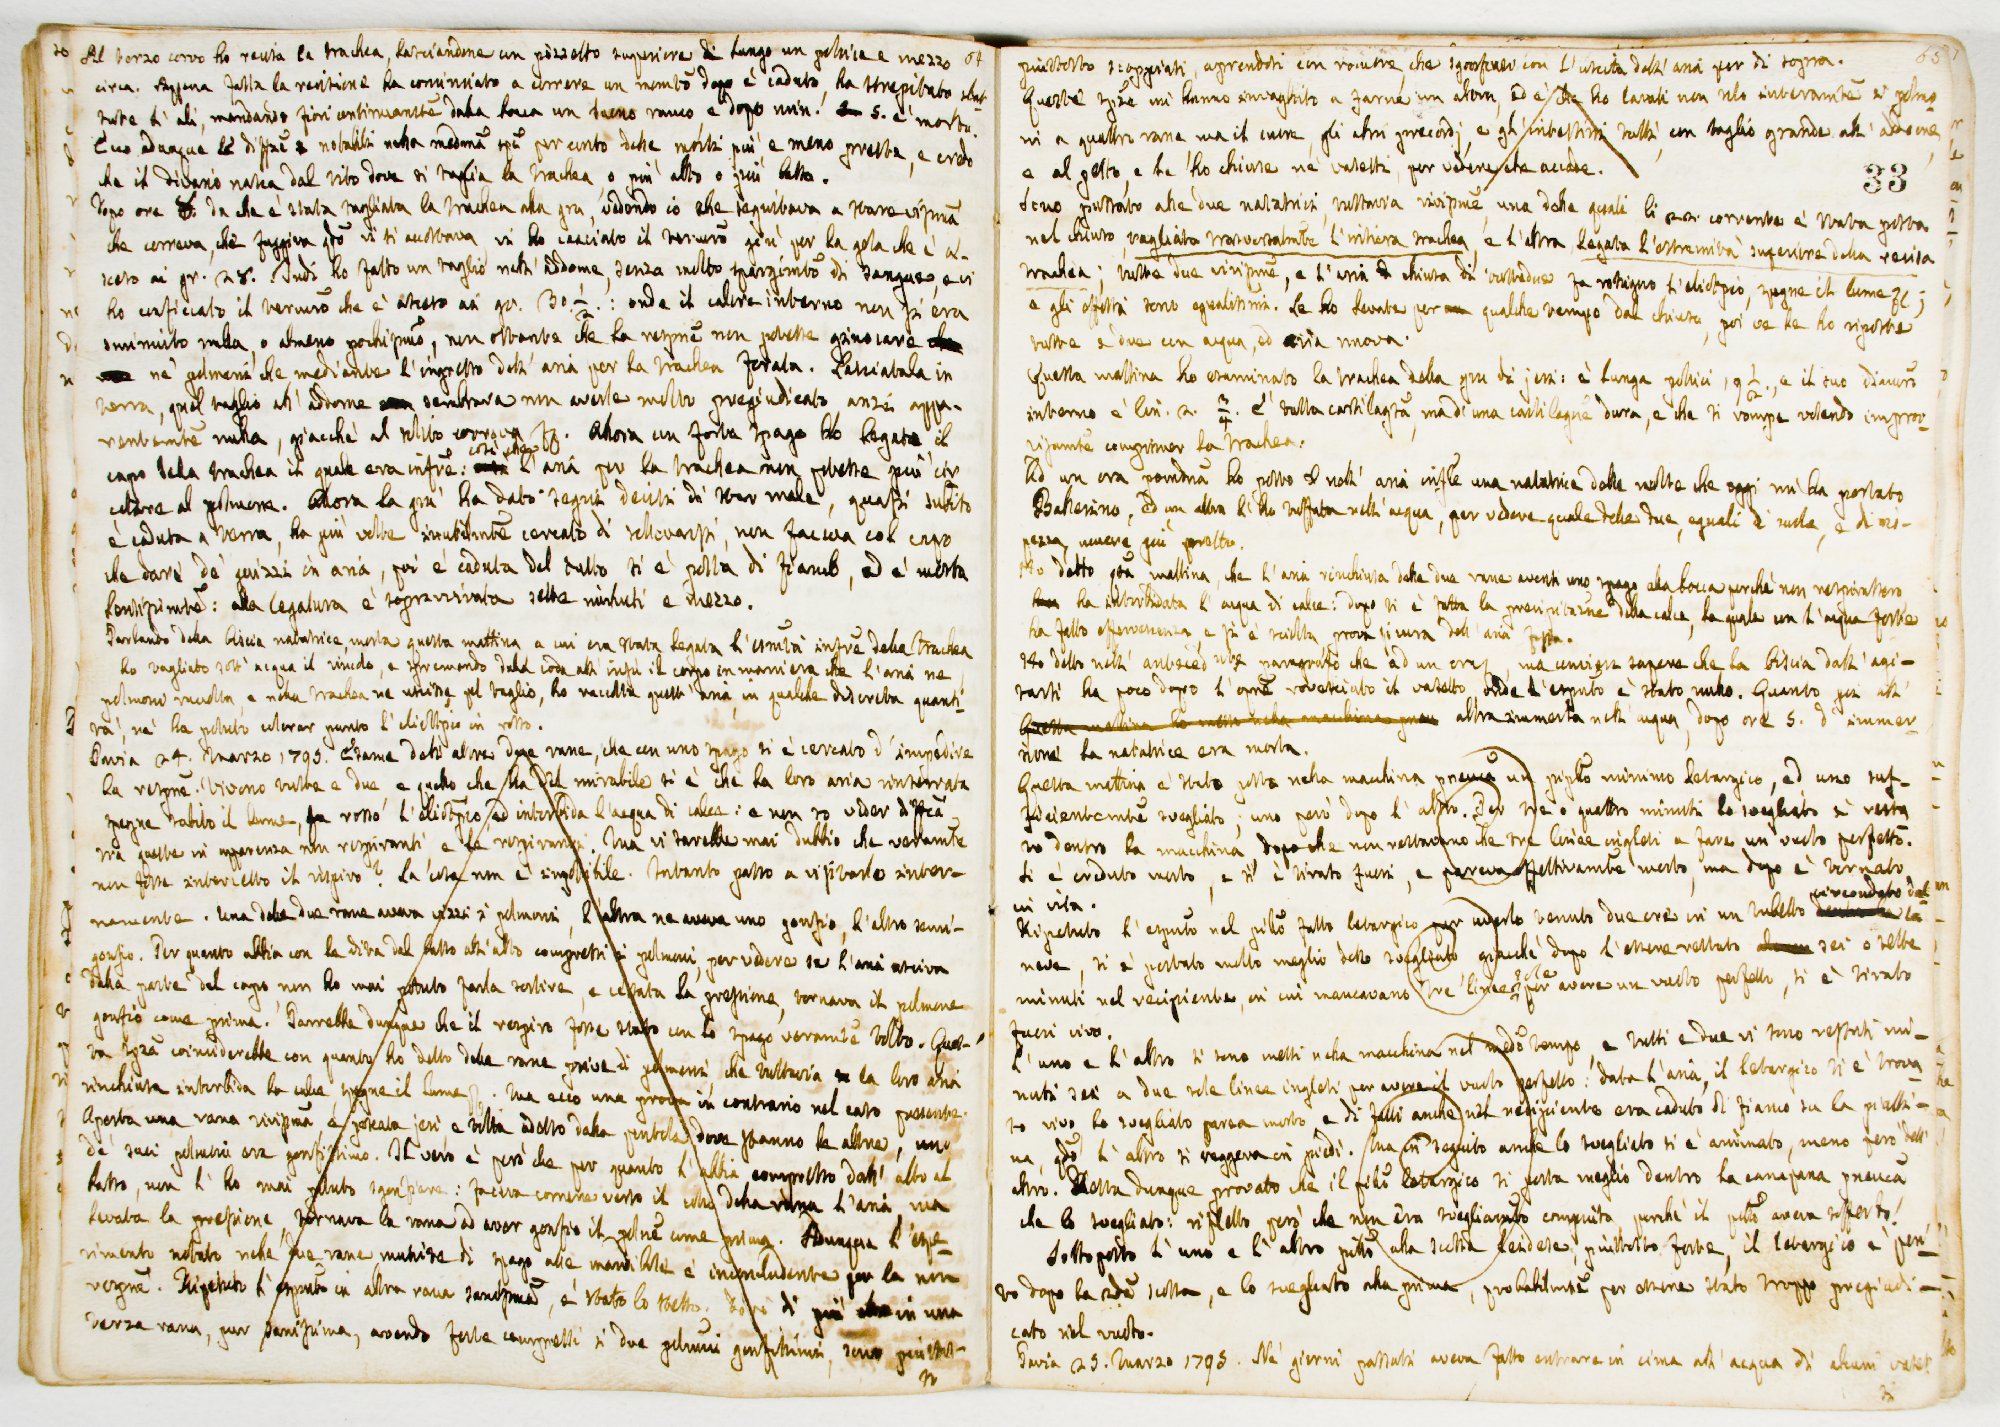 Al terzo corvo ho recisa la trachea, lasciandone un pizzetto superiore di lungo un pollice e mezzo 64
circa. Appena fatta la recisione ha cominciato a correre un dopo è caduto, ha strepitato
tute l'ali, mandando fuori continuamte dalla bocca un suono rauco e dopo min. 5. è morto.
Ecco adunque le notabili nella medma per conto delle morti più e meno presta, e credo
che il divario nasca dal sito dove si taglia la trachea o più alto o più basso.
Dopo ore da che è stata tagliata la trachea alla gru, vedendo io che seguitava a stare
che correva, che fuggiva qdo vi si accostava vi ho cacciato il termro giù per la gola che è a-
sceso ai gr. 28. Indi ho fatto un taglio nell'addome, senza molto di sangue, e vi
ho conficcato il termro che è asceso ai gr. 30 1/2.: onde il calore interno non si era
sminuito nulla, o almeno pochismo, non ostante che la respne non potesse
ne' polmoni che mediante l'ingresso dell'aria per la trachea forata. Lasciatala in
terra, quel taglio all'addome sembrava non averle molto pregiudicato anzi appa-
rentemte nulla, giacchè al solito correva. Allora un forte spago ho legato il
capo della trachea il quale era infre: così che l'aria per la trachea non potesse più cir
colare al polmone. Allora la gru ha dato segni decisi di star male, quasi subito
è caduta a terra, ha più volte inutilmte cercato di sollevarsi, non faceva col capo
che dare de' guizzi in aria, poi è caduta del tutto si è posta di fianco, ed è morta
lentissimte: alla legatura è sopravvivuta sette minuti e mezzo.
Parlando della biscia natatrice, morta questa mattina a cui era stata legata l'estmità infre della trachea
ho tagliato sott'acqua il vincolo, e spremendo dalla coda all'insù il corpo in manniera che l'aria ne'
polmoni raccolta, e nella trachea ne uscisse pel taglio, ho raccolta quest'aria, in qualche discreta quanti
tà, nè ha potuto colorar punto l'eliotropio in rosso.
Pavia 24. Marzo 1795. Esame dell'altre due rane, che con uno spago si è cercato d'impedire
la respne. Vivono tutte e due e quello che ha del mirabile si è che la loro aria rinserrata
spegne subito il lume, fa rosso l'eliotropio ed intorbida l'acqua di calce: e non so veder diffza
tra queste in apparenza non respiranti e le respiranti. Ma vi sarebbe mai dubbio che veramte
non fosse intercetto il respiro? La cosa non è impossibile. Intanto passo a visitarle inter-
namente. Una delle due rane aveva vizzi i polmoni, l'altra ne aveva uno gonfio, l'altro semi-
gonfio. Per quanto abbia con le dita dal basso all'alto compressi i polmoni, per vedere se l'aria usciva
dalla parte del capo non ho mai potuto farla sortire, e cessata la pressione, tornava il polmone
gonfio come prima. Parrebbe dunque che il respiro fosse stato con lo spago veramte tolto. Ques-
ta coinciderebbe con quanto ho detto delle rane prive di polmoni che tuttavia la loro aria
rinchiusa intorbida la calce spegne il lume. Ma ecco una prova in contrario nel caso presente.
Aperta una rana vivipma e pescata jeri e tolta adesso dalla pentola dove stanno le altre, uno
de' suoi polmoni era gonfissimo. Il vero è però che per quanto l'abbia compresso dall'alto al
basso, non l'ho mai potuto sgonfiare: faceva correre verso il collo della rana l'aria, ma
levata la pressione, tornava la rana ad aver gonfio il polne come prima. Adunque l'espe-
rimento notato nelle due rane munite di spago alle mandible è inconcludente per la non
respne. Ripetuto l'esprmto in altra rana sanissma, è stato lo stesso. Dirò di più in una
terza rana, pur sanissima, avendo forte compressi i due polmoni gonfissimi, sono piuttos-
to
65
piuttosto scoppiati, aprendosi con rotture, che sgonfiarsi con l'uscita dell'aria per di sopra.
Queste mi hanno invaghito a farne un altra, ed è che ho levati non solo interamte i polmo
ni a quattro rane ma il cuore, gli altri precordj, e gl'intestini tutti, con taglio grande all'addome,
e al petto, e le ho chiuse ne' vasetti, per vedere che accade.
33
Sono passato alle due natatrici, tuttavia vivipme, una delle quali li 22. corrente è stata posta
nel chiuso, tagliata trasversalmte l'intiera trachea, e l'altra, legata l'estremità superiore della recisa
trachea; tutte due vivipme, e l'aria chiusa di tuttedue fa rossigno l'eliotropio, spegne il lume;
e gli effetti sono egualissimi. Le ho levate per qualche tempo dal chiuso, poi ve le ho riposte
tutte e due con acqua, ed aria nuova.
Questa mattina ho esaminato la trachea della gru di jeri: è lunga pollici 19 1/2, e il suo diamro
interno è lin. 2. 3/4. È tutta cartilagsa, ma di una cartilagne dura, e che si rompe volendo improv-
visamte comprimer la trachea.
Ad un ora pomdna ho posto nell'aria una natatrice delle molte che oggi mi ha portato
Ballerino, ed un altra l'ho tuffata nell'acqua, per vedere quale delle due, eguali di mole, e di ro-
bezza, muore più presto.
Ho detto qta mattina, che l'aria rinchiusa delle due rane aventi uno spago alla bocca perchè non respirassero
ha intorbidata l'acqua di calce: dopo si è fatta la precipitazne della calce, la quale con l'acqua forte
ha fatto effervescenza e si è sciolta prova sicura dell'aria fissa.
Ho detto nell'anteced paragrafo che ad un ora, ma conviene sapere che la biscia dall'agi-
tarsi ha poco dopo l'opne rovesciato il vasetto, onde l'esprmto è stato nullo. Quanto poi all'
altra immersa nell'acqua, dopo ore 5. d'immer-
sione la natatrice era morta.
Questa mattina è stato posto nella macchina pneuca un pipllo minimo letargico, ed uno suf-
ficientemte svegliato; uno però dopo l'altro. Per tre o quattro minuti lo svegliato è resta
to dentro la macchina, dopo che non restavano che tre linee inglesi a fare un vuoto perfetto.
Si è creduto morto, e si è tirato fuori, e pareva effettivamte morto, ma dopo è tornato
in vita.
Ripetuto l'esprmto nel pillo fatto letargico per averlo tenuto due ore in un tubetto circondato dal
neve, si è portato molto meglio dello svegliato giacchè dopo l'essere restato sei o sette
minuti nel recipiente, in cui mancavano tre sole linee per avere un vuoto perfetto, si è tirato
fuori vivo.
L'uno e l'altro si sono messi nella macchina nel medmo tempo, e tutti e due vi sono restati mi-
nuti sei a due sole linee inglesi per avere il vuoto perfetto: data l'aria, il letargico si è trova
to vivo lo svegliato parea morto e di fatti anche nel recipiente era caduto di fianco su la pelli-
na, qdo l'altro si reggeva in piedi. Ma in seguito anche lo svegliato si è animato, meno però dell'
altro. Resta dunque provato che il pillo letargico si porta meglio dentro la campana pneuca
che lo svegliato: rifletto però che non era svegliamto compiuto, perchè il pllo aveva sofferto.
Sottoposto l'uno e l'altro pllo alla scossa leidese, piuttosto forte, il letargico è peri
to dopo la 2da scossa, e lo svegliato alla prima, probabilmte per essere stato troppo pregiudi-
cato nel vuoto.
Pavia 25. Marzo 1795. Ne' giorni passati aveva fatto entrare in cima all'acqua di alcuni vaset